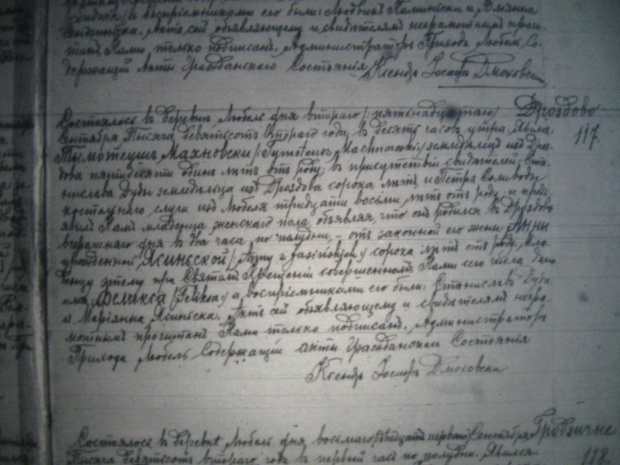 воспріемниками его были
Акт сей объявляющему и свидѣтелям неграмотным прочи-
тан Нами только подписан. Администраторъ Прихода Любель Со-
держащій Акты Гражданского Состоянія
Ксендзъ Іосифъ Дмоховски
Дроздово
117.
Состоялось въ деревнѣ Любель дня втораго / пятнадцатаго /
Сентября Тысяча девятьсот втораго года, въ десять часовъ утра. Явился
Тымотеушъ Махновски / Tymoteusz Machnowski / земледѣлецъ изъ Дроз-
дова пятидесяти одного лѣтъ отъ роду, въ присутствіи свидѣтелей, Ста-
нислава Дуды земледѣльца изъ Дроздова сорока лѣтъ, и Петра
костельнаго слуги изъ Любеля тридцати восьми лѣтъ отъ роду, и предъ-
явилъ Намъ младенца женскаго пола, объявляя, что онъ родился въ Дроздовѣ
вчерашняго дня въ два часа по полудни, отъ законной его жены Анны
урожденной Ясинской / сорока лѣтъ отъ роду. Мла-
денцу этому при Святомъ Крещеніи совершенномъ Нами сего числа дано
имя Феликса / Feliksa / а воспріемниками его были: Станиславъ Дуда
и Маріянна Ясиньска. Актъ сей объявляющему и свидѣтелямъ негра-
мотнымъ прочитанъ Нами только подписанъ. Администраторъ
Прихода Любель Содержащій акты Гражданскаго Состоянія
Ксендзъ Іосифъ Дмоховски
Состоялось въ деревнѣ Любель дня восьмаго / двадцать перваго / Сентября
Тысяча девятьсот втораго года въ первый часъ по полудни. Явился
118.